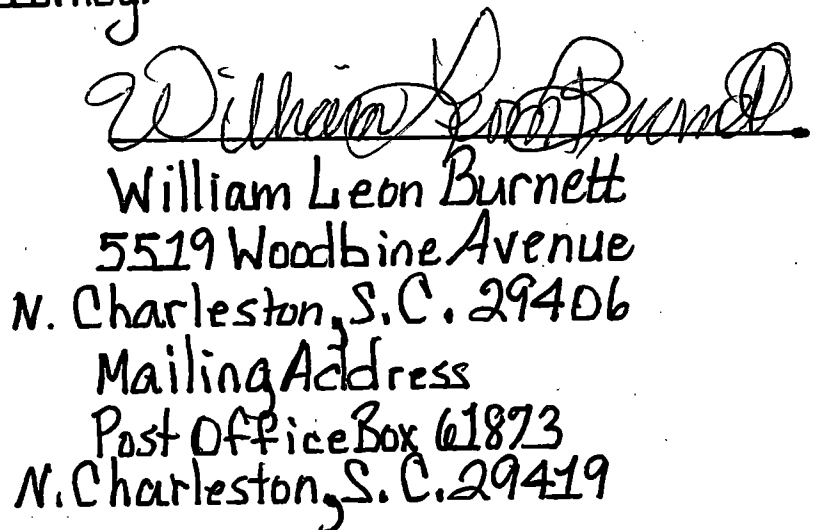 William Leon Burnett
William Leon Burnett
5519 Woodbine Avenue
N. Charleston, S.C. 29406
Mailing Address
Post Office Box 61873
N. Charleston, S.C. 29419